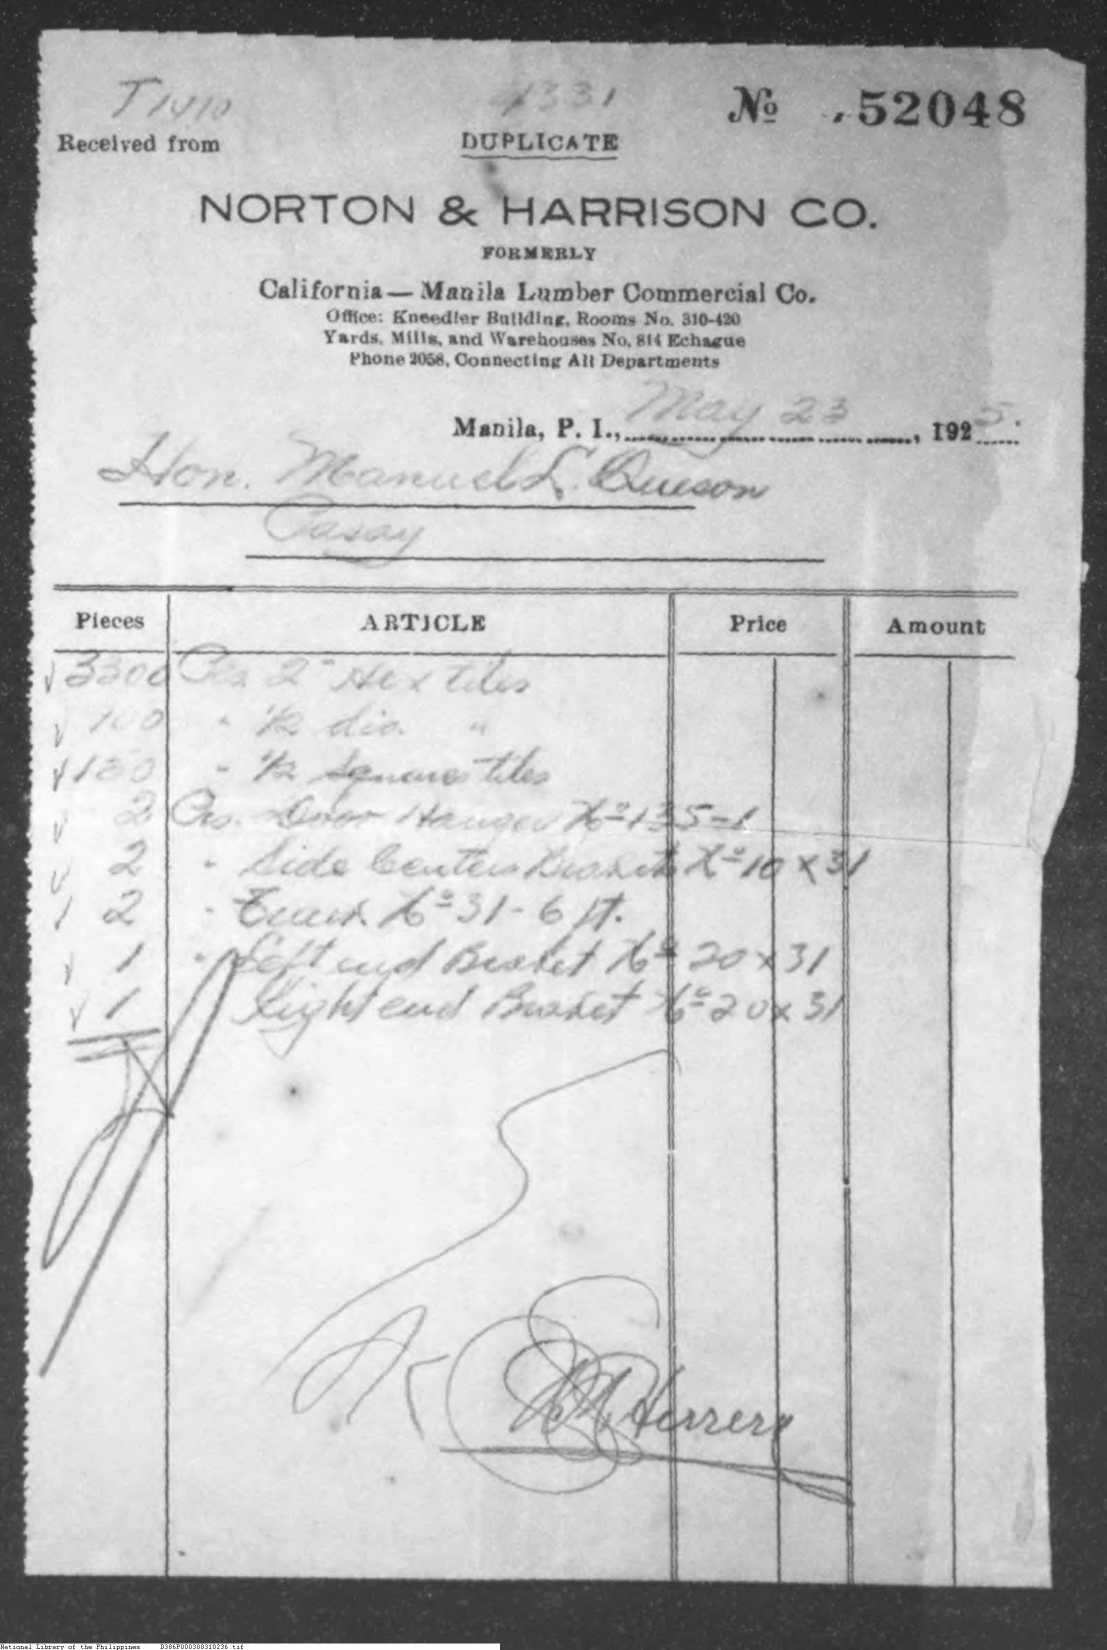 T1410
4331
Nº 52048
Received from
DUPLICATE
NORTON & HARRISON CO.
FORMERLY
California — Manila Lumber Commercial Co.
Office: Kneedler Building, Rooms No. 310-420
Yards, Mills, and Warehouses No. 814 Echague
Phone 2058, Connecting All Departments
Manila, P. I., May 23, 1925.
Hon. Manuel L. Quezon
Pasay
Pieces ARTICLE Price Amount
3300 Pcs. 2" Hex tiles
100 " 1/2 dia. "
150 " 1/2 Squares tiles
2 Pcs. Door Hanger Nº 135-1
2 " Side Center Bracket Nº 10 x 31
2 " Track Nº 31 - 6 ft.
1 " Left end Bracket Nº 20 x 31
1 Right end Bracket Nº 20 x 31
Herrera
National Library of the Philippines D386P000308310236.tif